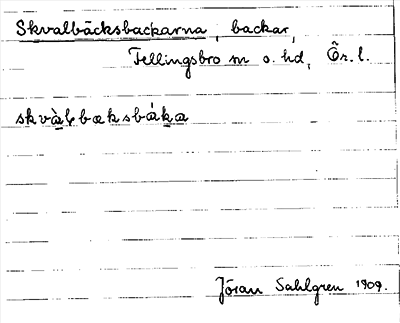 Skvalbäcksbackarna, backar,
Fellingsbro sn o. hd, Ör. l.
skvàlbæksbáka
Jöran Sahlgren 1909.